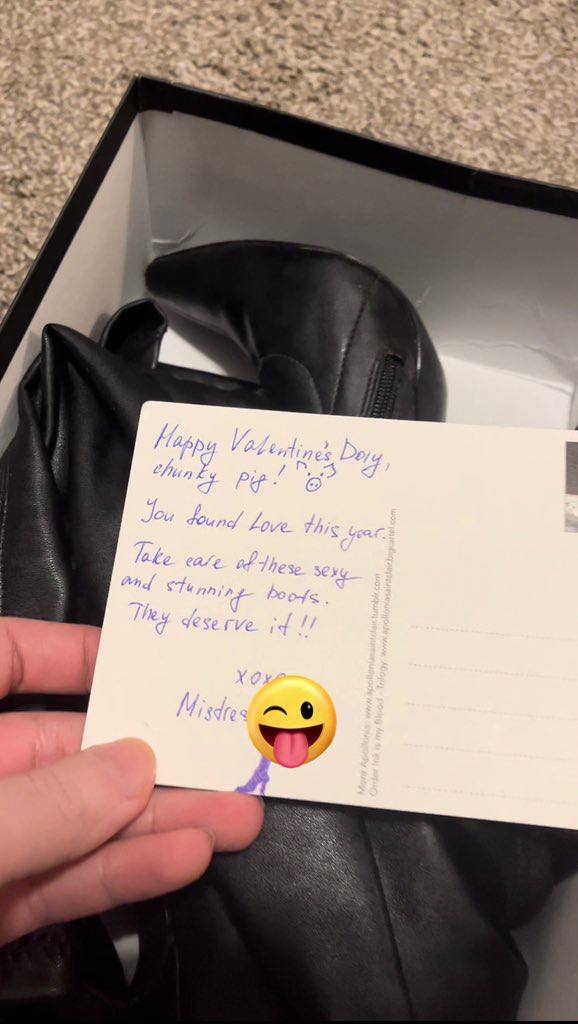 Happy Valentine's Day,
chunky pig!
You found Love this year.
Take care of these sexy
and stunning boots.
They deserve it!!
xoxo
Mistres
More Apollonia: www.apolloniasaintclair.tumblr.com
Order Ink is my Blood - Trilogy: www.apolloniasaintclair.bigcartel.com